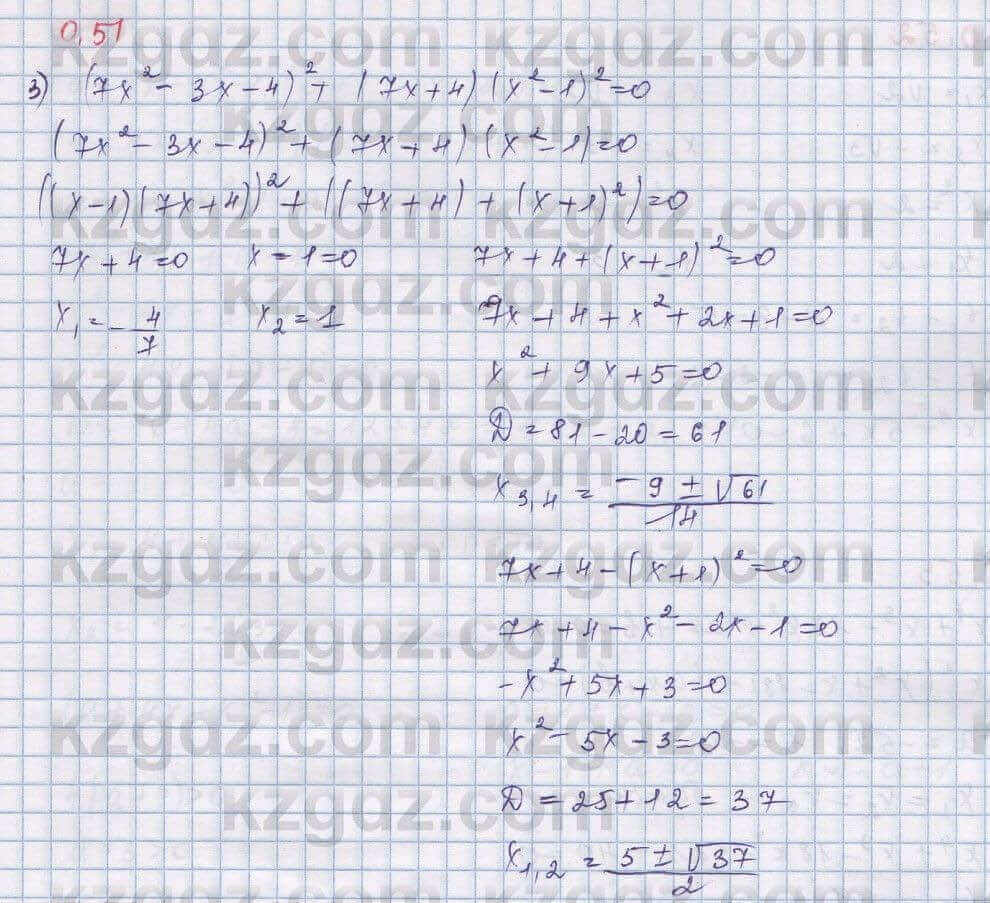 0,51
3) (7x² - 3x - 4)² + (7x + 4)(x² - 1)² = 0
(7x² - 3x - 4)² + (7x + 4)(x² - 1) = 0
((x - 1)(7x + 4))² + ((7x + 4) + (x + 1)²) = 0
7x + 4 = 0 x - 1 = 0 7x + 4 + (x + 1)² = 0
x₁ = -4/7 x₂ = 1 7x + 4 + x² + 2x + 1 = 0
x² + 9x + 5 = 0
D = 81 - 20 = 61
x₃,₄ = (-9 ± √61)/14
7x + 4 - (x + 1)² = 0
7x + 4 - x² - 2x - 1 = 0
-x² + 5x + 3 = 0
x² - 5x - 3 = 0
D = 25 + 12 = 37
x₁,₂ = (5 ± √37)/2
kzgdz.com